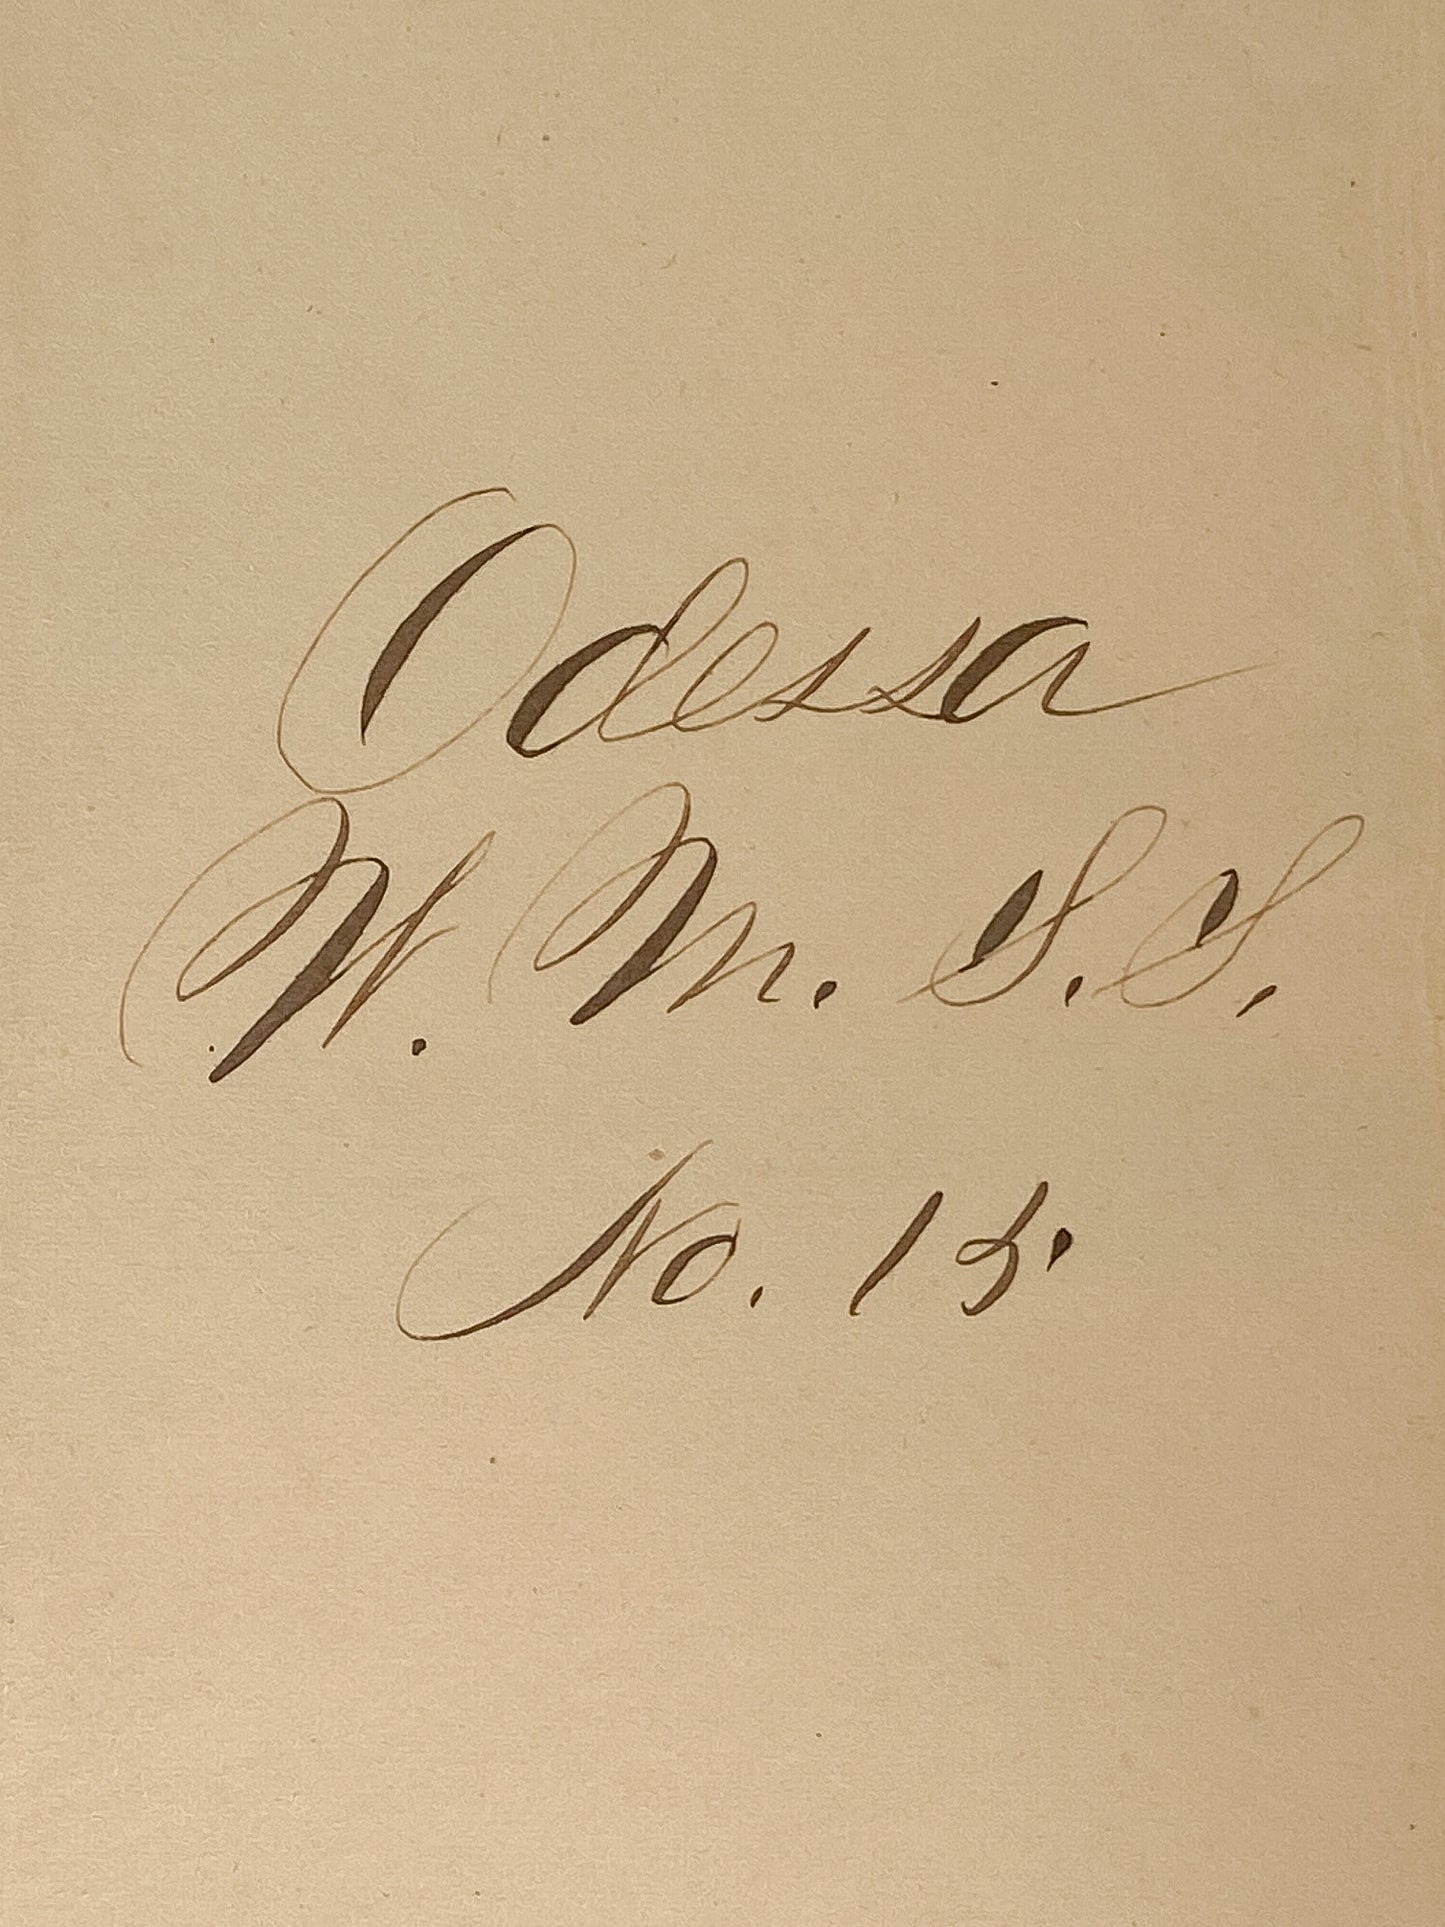 Odessa
W. M. S. S.
No. 15.